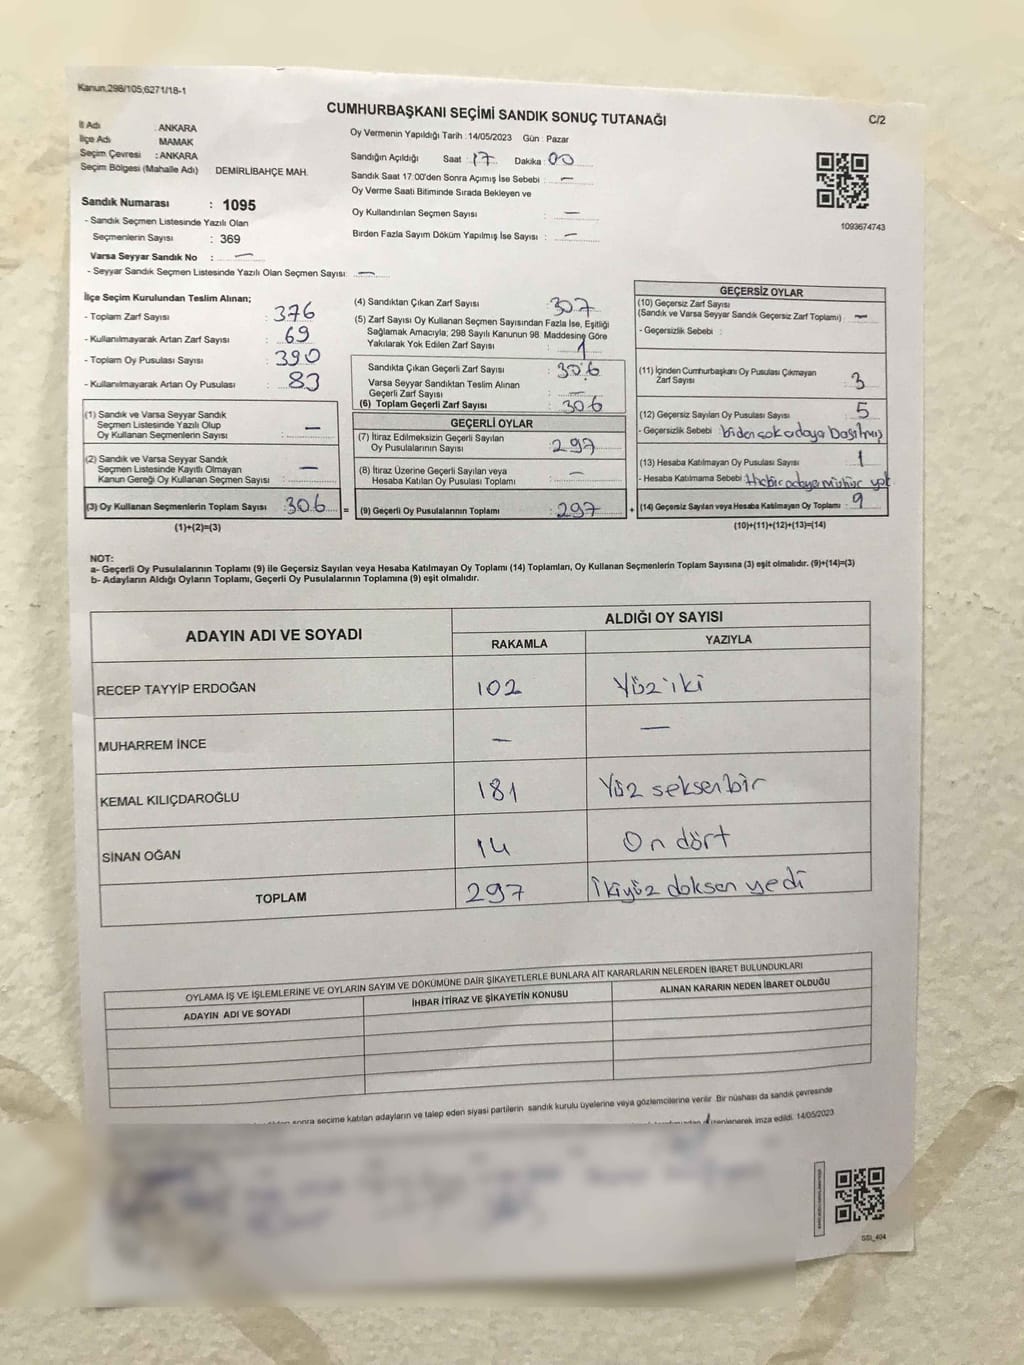 Kanun,298/105,6271/18-1
CUMHURBAŞKANI SEÇİMİ SANDIK SONUÇ TUTANAĞI
C/2
İl Adı : ANKARA
İlçe Adı MAMAK
Seçim Çevresi : ANKARA
Seçim Bölgesi (Mahalle Adı) DEMİRLİBAHÇE MAH.
Sandık Numarası : 1095
- Sandık Seçmen Listesinde Yazılı Olan
Seçmenlerin Sayısı : 369
Varsa Seyyar Sandık No : —
- Seyyar Sandık Seçmen Listesinde Yazılı Olan Seçmen Sayısı: —
Oy Vermenin Yapıldığı Tarih : 14/05/2023 Gün : Pazar
Sandığın Açıldığı Saat : 17 Dakika : 00
Sandık Saat 17:00'den Sonra Açımış İse Sebebi : —
Oy Verme Saati Bitiminde Sırada Bekleyen ve
Oy Kullandırılan Seçmen Sayısı : —
Birden Fazla Sayım Döküm Yapılmış İse Sayısı : —
1093674743
İlçe Seçim Kurulundan Teslim Alınan;
- Toplam Zarf Sayısı : 376
- Kullanılmayarak Artan Zarf Sayısı : 69
- Toplam Oy Pusulası Sayısı : 390
- Kullanılmayarak Artan Oy Pusulası : 83
(1) Sandık ve Varsa Seyyar Sandık
Seçmen Listesinde Yazılı Olup
Oy Kullanan Seçmenlerin Sayısı : —
(2) Sandık ve Varsa Seyyar Sandık
Seçmen Listesinde Kayıtlı Olmayan
Kanun Gereği Oy Kullanan Seçmen Sayısı : —
(3) Oy Kullanan Seçmenlerin Toplam Sayısı : 306 =
(1)+(2)=(3)
(4) Sandıktan Çıkan Zarf Sayısı : 307
(5) Zarf Sayısı Oy Kullanan Seçmen Sayısından Fazla İse, Eşitliği
Sağlamak Amacıyla; 298 Sayılı Kanunun 98. Maddesine Göre
Yakılarak Yok Edilen Zarf Sayısı : 1
Sandıkta Çıkan Geçerli Zarf Sayısı : 306
Varsa Seyyar Sandıktan Teslim Alınan
Geçerli Zarf Sayısı : —
(6) Toplam Geçerli Zarf Sayısı : 306
GEÇERLİ OYLAR
(7) İtiraz Edilmeksizin Geçerli Sayılan
Oy Pusulalarının Sayısı : 297
(8) İtiraz Üzerine Geçerli Sayılan veya
Hesaba Katılan Oy Pusulası Toplamı : —
(9) Geçerli Oy Pusulalarının Toplamı : 297 +
GEÇERSİZ OYLAR
(10) Geçersiz Zarf Sayısı
(Sandık ve Varsa Seyyar Sandık Geçersiz Zarf Toplamı) : —
- Geçersizlik Sebebi :
(11) İçinden Cumhurbaşkanı Oy Pusulası Çıkmayan
Zarf Sayısı : 3
(12) Geçersiz Sayılan Oy Pusulası Sayısı : 5
- Geçersizlik Sebebi : birden çok adaya basılmış
(13) Hesaba Katılmayan Oy Pusulası Sayısı : 1
- Hesaba Katılmama Sebebi : Hiçbir adaya mühür yok
(14) Geçersiz Sayılan veya Hesaba Katılmayan Oy Toplamı : 9
(10)+(11)+(12)+(13)=(14)
NOT:
a- Geçerli Oy Pusulalarının Toplamı (9) ile Geçersiz Sayılan veya Hesaba Katılmayan Oy Toplamı (14) Toplamları, Oy Kullanan Seçmenlerin Toplam Sayısına (3) eşit olmalıdır. (9)+(14)=(3)
b- Adayların Aldığı Oyların Toplamı, Geçerli Oy Pusulalarının Toplamına (9) eşit olmalıdır.
ADAYIN ADI VE SOYADI
ALDIĞI OY SAYISI
RAKAMLA YAZIYLA
RECEP TAYYİP ERDOĞAN 102 Yüz iki
MUHARREM İNCE — —
KEMAL KILIÇDAROĞLU 181 Yüz seksenbir
SİNAN OĞAN 14 On dört
TOPLAM 297 İkiyüz doksen yedi
OYLAMA İŞ VE İŞLEMLERİNE VE OYLARIN SAYIM VE DÖKÜMÜNE DAİR ŞİKAYETLERLE BUNLARA AİT KARARLARIN NELERDEN İBARET BULUNDUKLARI
ADAYIN ADI VE SOYADI İHBAR İTİRAZ VE ŞİKAYETİN KONUSU ALINAN KARARIN NEDEN İBARET OLDUĞU
sonra seçime katılan adayların ve talep eden siyasi partilerin sandık kurulu üyelerine veya gözlemcilerine verilir. Bir nüshası da sandık çevresinde
imza edildi. 14/05/2023